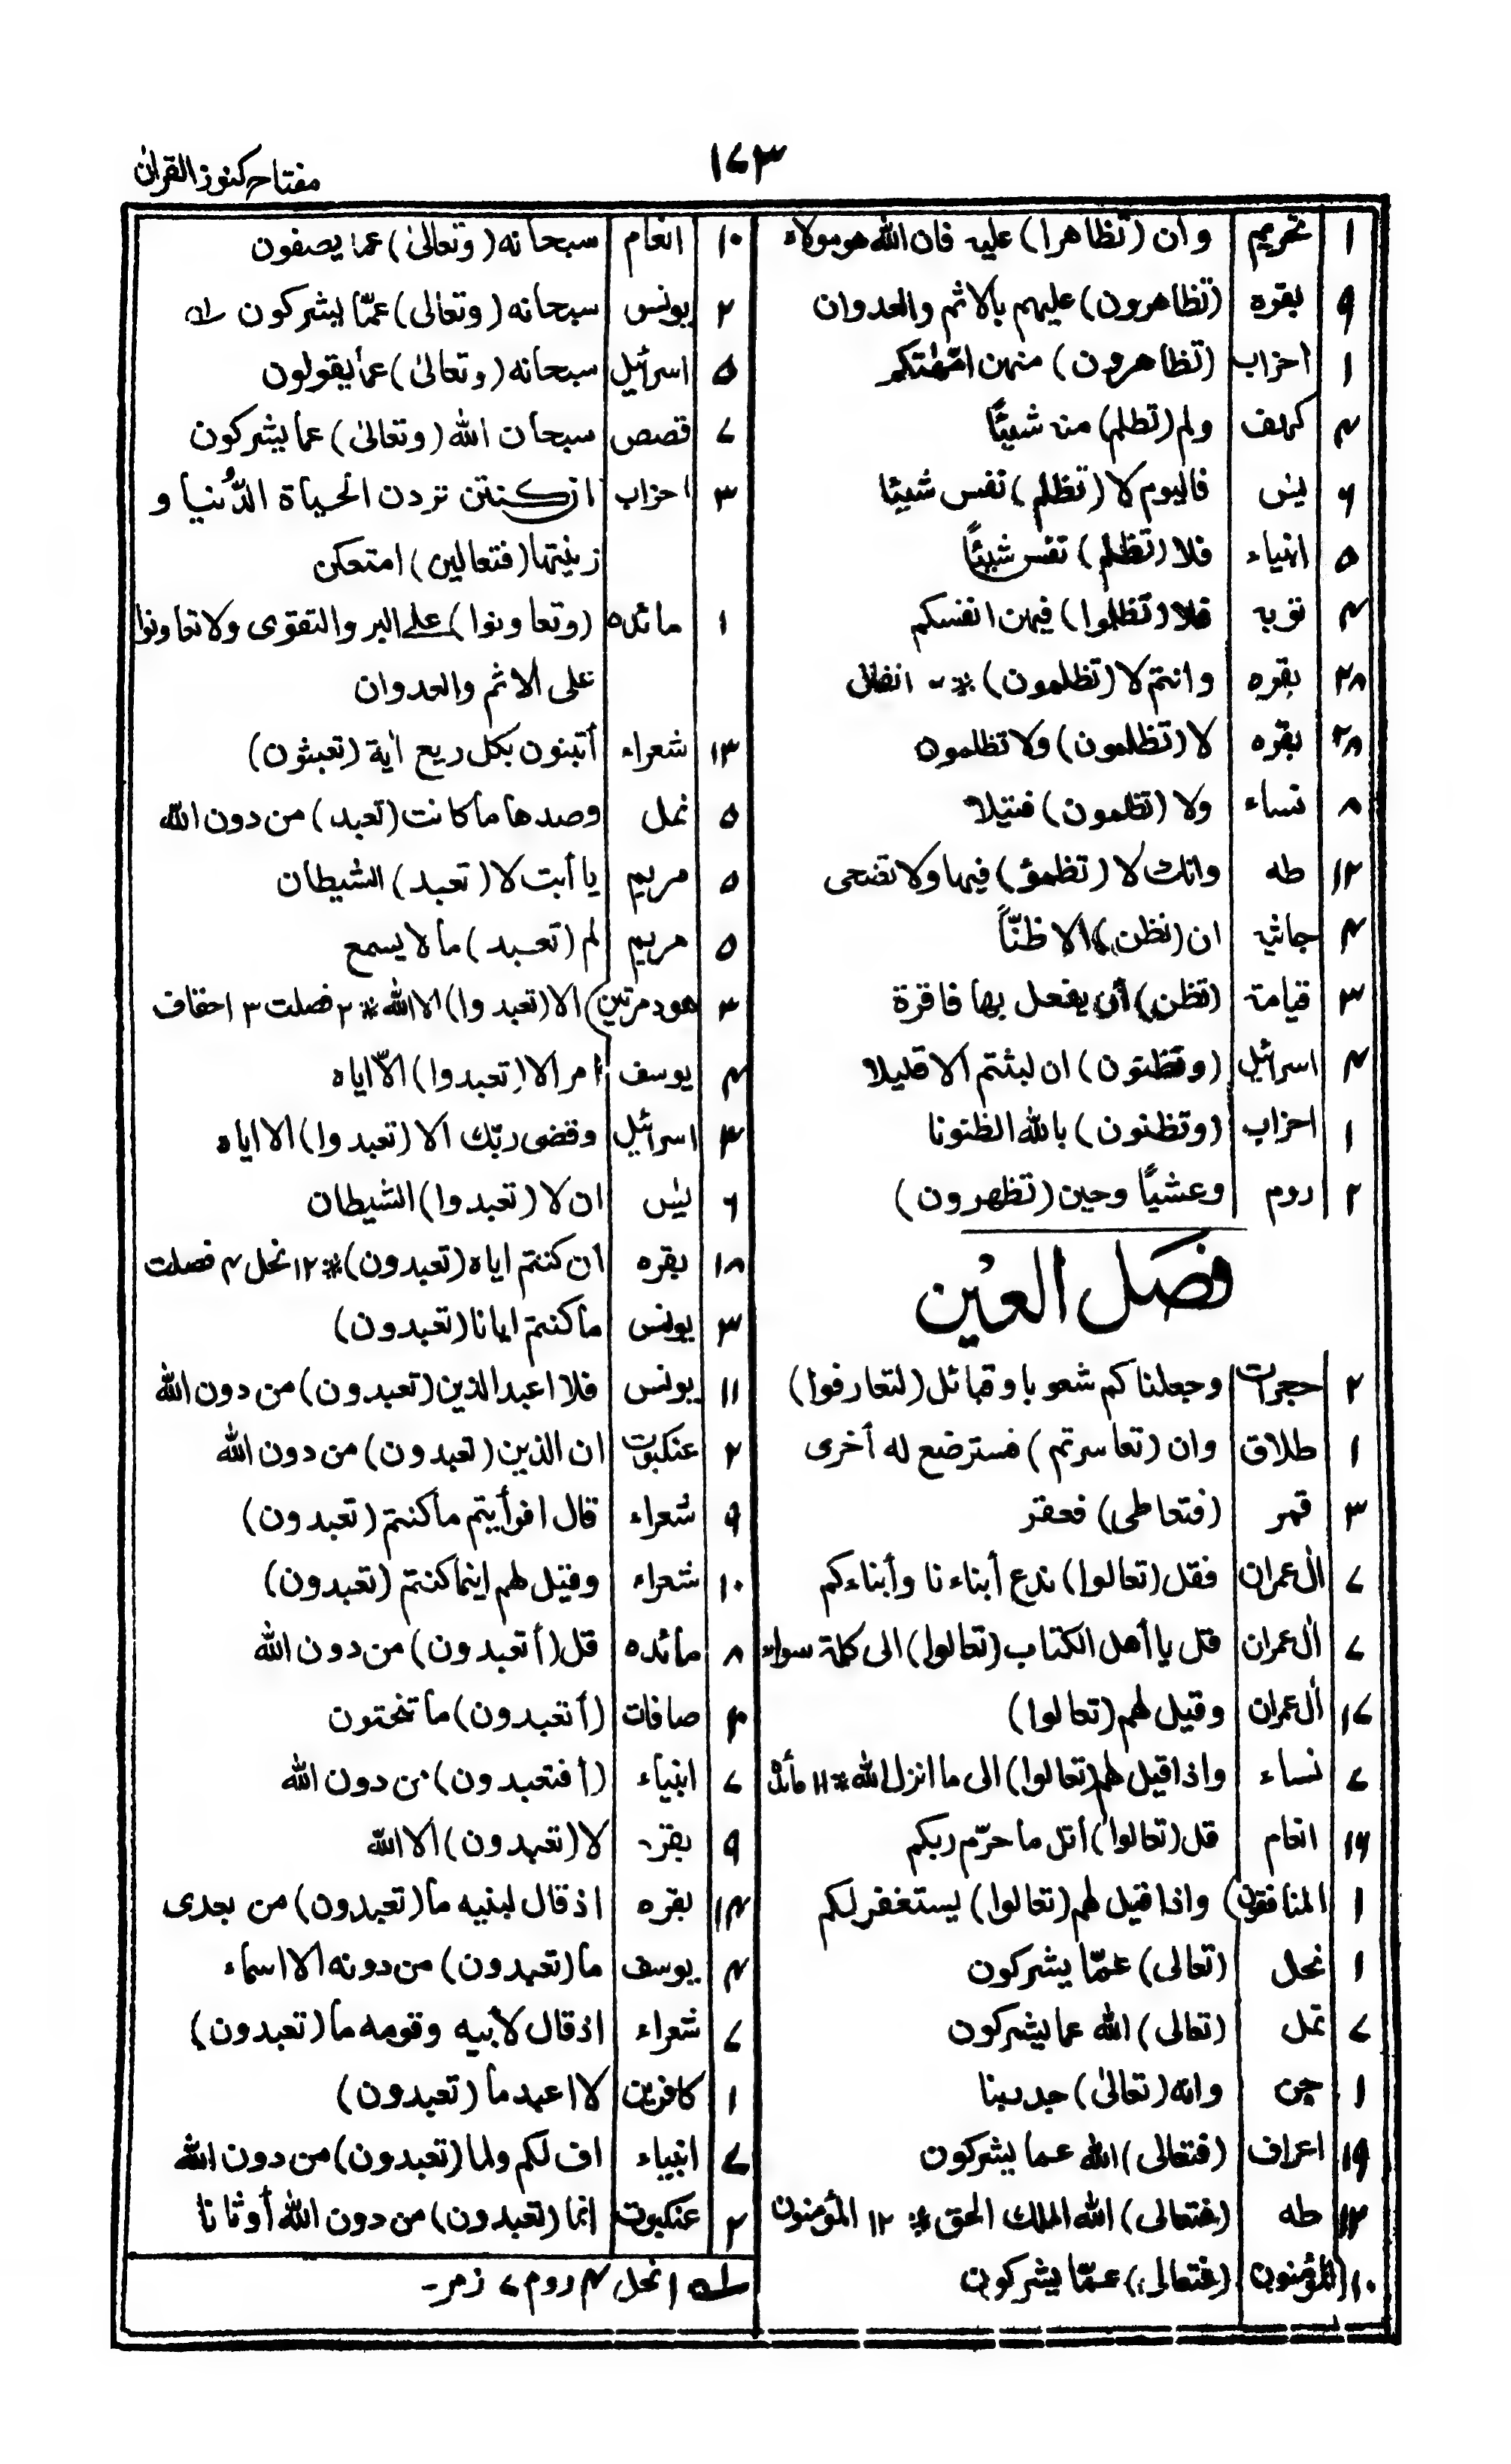 ١٧٣
مفتاح كنوز القراٰن
١ تحريم وان (تظاهرا) عليه فان الله هو مولاه
٩ بقره (تظاهرون) عليهم بالاثم والعدوان
١ احزاب (تظاهرون) منهن امّهٰتكم
٤ كهف ولم (تظلم) منه شيئًا
٦ يٰس فاليوم لا (تظلم) نفس شيئا
٥ انبياء فلا (تظلم) نفس شيئًا
٤ توبه فلا (تظلموا) فيهن انفسكم
٢٨ بقره وانتم لا (تظلمون) * انفال
٢٨ بقره لا (تظلمون) ولا تظلمون
٨ نساء ولا (تظلمون) فتيلا
١٢ طه وانك لا (تظمؤ) فيها ولا تضحى
٤ جاثيه ان (نظن) الا ظنّاً
٣ قيامة (تظن) أن يفعل بها فاقرة
٤ اسرائيل (وتظنون) ان لبثتم الا قليلا
١ احزاب (وتظنون) بالله الظنونا
٢ روم وعشيًّا وحين (تظهرون)
فصل العين
٢ حجرات وجعلناكم شعوبا وقبائل (لتعارفوا)
١ طلاق وان (تعاسرتم) فسترضع له أخرى
٣ قمر (فتعاطى) فعقر
٧ اٰل عمران فقل (تعالوا) ندع أبناءنا وأبناءكم
٧ اٰل عمران قل يا أهل الكتاب (تعالوا) الى كلمة سواء
١٧ اٰل عمران وقيل لهم (تعالوا)
٧ نساء واذا قيل لهم (تعالوا) الى ما انزل الله * ١١ مائدة
١٦ انعام قل (تعالوا) أتل ما حرّم ربكم
١ المنافقون) واذا قيل لهم (تعالوا) يستغفر لكم
١ نحل (تعالى) عمّا يشركون
٧ نمل (تعالى) الله عما يشركون
١ جن وانه (تعالىٰ) جد ربنا
١٩ اعراف (فتعالى) الله عما يشركون
١٢ طه (فتعالى) الله الملك الحق * ١٢ المؤمنون
١٠ المؤمنون (فتعالى) عمّا يشركون
١٠ انعام سبحانه (وتعالىٰ) عما يصفون
٢ يونس سبحانه (وتعالى) عمّا يشركون لـه
٥ اسرائيل سبحانه (وتعالىٰ) عما يقولون
٧ قصص سبحان الله (وتعالىٰ) عما يشركون
٣ احزاب ان كنتن تردن الحياة الدُّنيا و
زينتها (فتعالين) امتعكن
١ مائده (وتعاونوا) على البر والتقوى ولا تعاونوا
على الاثم والعدوان
١٣ شعراء أتبنون بكل ريع اٰية (تعبثون)
٥ نمل وصدها ما كانت (تعبد) من دون الله
٥ مريم يا أبت لا (تعبد) الشيطان
٥ مريم لم (تعبد) ما لا يسمع
٣ هود مرتين) الا (تعبدوا) الا الله * ٢ فصلت ٣ احقاف
٤ يوسف امر الا (تعبدوا) الّا اياه
٣ اسرائيل وقضى ربّك الا (تعبدوا) الا اياه
٦ يٰس ان لا (تعبدوا) الشيطان
١٨ بقره ان كنتم اياه (تعبدون) * ١٢ نحل ٤ فصلت
٣ يونس ما كنتم ايانا (تعبدون)
١١ يونس فلا اعبد الذين (تعبدون) من دون الله
٢ عنكبوت ان الذين (تعبدون) من دون الله
٩ شعراء قال افرأيتم ما كنتم (تعبدون)
١٠ شعراء وقيل لهم اينما كنتم (تعبدون)
٨ مائده قل (أتعبدون) من دون الله
٣ صافات (أتعبدون) ما تنحتون
٧ انبياء (أفتعبدون) من دون الله
٩ بقره لا (تعبدون) الا الله
١٤ بقره اذ قال لبنيه ما (تعبدون) من بعدى
٤ يوسف ما (تعبدون) من دونه الا اسماء
٧ شعراء اذ قال لأبيه وقومه ما (تعبدون)
١ كافرين لا اعبد ما (تعبدون)
٧ انبياء اف لكم ولما (تعبدون) من دون الله
٢ عنكبوت انما (تعبدون) من دون الله أوثانا
لـه ١ نحل ٤ روم ٧ زمر-